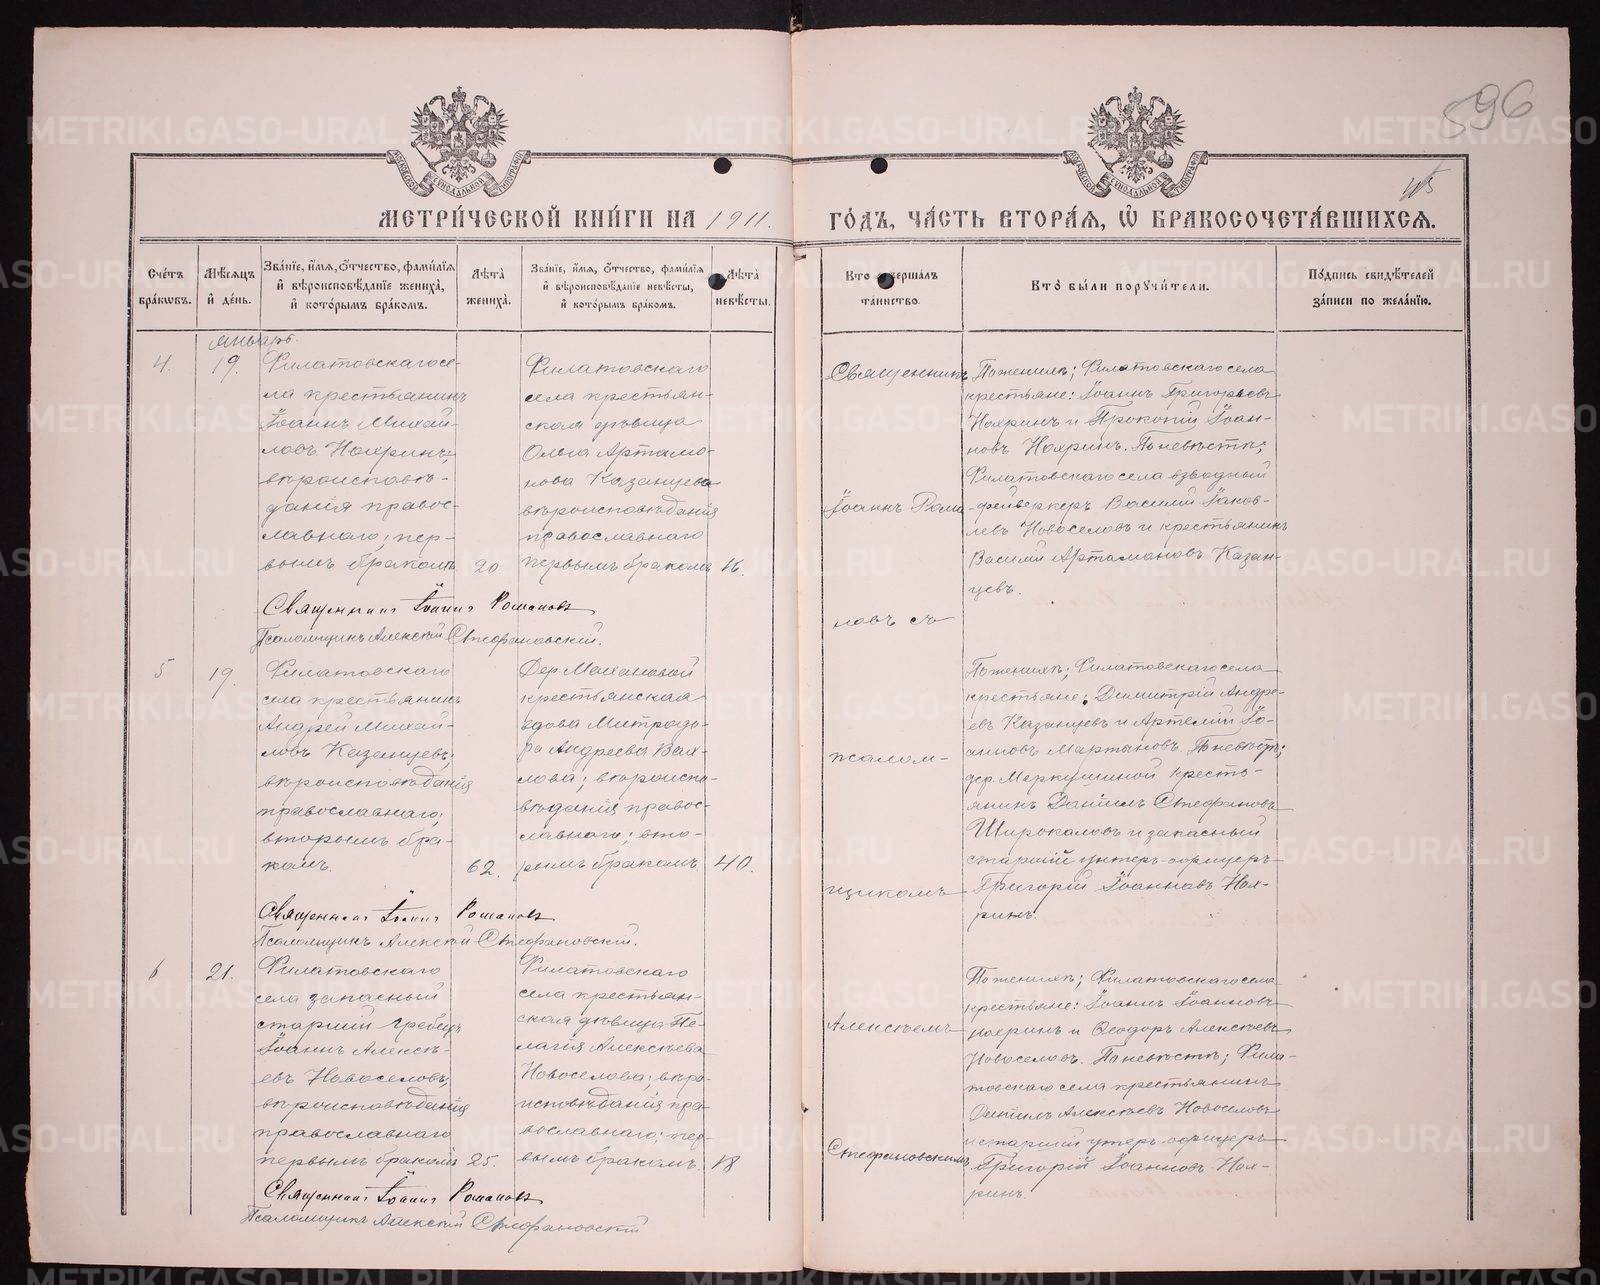 596
МЕТРИ́ЧЕСКОЙ КНИ́ГИ НА 1911.
ГО́ДЪ, ЧА́СТЬ ВТОРА́Я, Ѡ БРАКОСОЧЕТА́ВШИХСЯ.
Сче́тъ бра́ковъ.
Мѣ́сяцъ и҆ де́нь.
Зва́нїе, и҆́мя, ѻ҆́тчество, фами́лїя и҆ вѣроисповѣ́данїе жениха̀, и҆ кото́рымъ бра́комъ.
Лѣ́та жениха̀.
Зва́нїе, и҆́мя, ѻ҆́тчество, фами́лїя и҆ вѣроисповѣ́данїе невѣ́сты, и҆ кото́рымъ бра́комъ.
Лѣ́та невѣ́сты.
Кто̀ соверша́лъ та́инство.
Кто̀ бы́ли поручи́тели.
По́дпись свидѣ́телей за́писи по жела́нїю.
Январь.
4.
19.
Филатовскаго се-
ла крестьянинъ
Іоаннъ Михай-
ловъ Нояринъ,
вѣроисповѣ-
данія правос-
лавнаго; пер-
вымъ бракомъ
20
Филатовскаго
села крестьян-
ская дѣвица
Ольга Артамо-
нова Казанцева
вѣроисповѣданія
православнаго
первымъ бракомъ
16.
Поженихѣ; Филатовскаго села
крестьяне: Іоаннъ Григорьевъ
Нояринъ и Прокопій Іоан-
новъ Нояринъ. Поневѣстѣ;
Филатовскаго села взводный
фейверкеръ Василій Іаков-
левъ Новоселовъ и крестьянинъ
Василій Артамоновъ Казан-
цевъ.
Священникъ Іоаннъ Романовъ
Псаломщикъ Алексій Стефановскій.
5
19.
Филатовскаго
села крестьянинъ
Андрей Михай-
ловъ Казанцевъ,
вѣроисповѣданія
православнаго;
вторымъ бра-
комъ.
62.
Дер Махановой
крестьянская
вдова Митродо-
ра Андреева Вах-
лова; вѣроиспо-
вѣданія правос-
лавнаго; вто-
рымъ бракомъ
40.
Поженихѣ; Филатовскаго села
крестьяне: Димитрій Андре-
евъ Казанцевъ и Артемій Іо-
анновъ Мартыновъ. Поневѣстѣ;
дер. Меркушиной кресть-
янинъ Даніилъ Стефановъ
Широкаловъ и запасный
старшій унтеръ-офицеръ
Григорій Іоанновъ Ноя-
ринъ.
Священникъ Іоаннъ Романовъ
Псаломщикъ Алексій Стефановскій.
6
21.
Филатовскаго
села запасный
старшій гребецъ
Іоаннъ Алексѣ-
евъ Новоселовъ,
вѣроисповѣданія
православнаго
первымъ бракомъ
25.
Филатовскаго
села крестьян-
ская дѣвица Пе-
лагія Алексѣева
Новоселова; вѣро-
исповѣданія пра-
вославнаго; пер-
вымъ бракомъ.
18
Поженихѣ; Филатовскаго села
крестьяне: Іоаннъ Іоанновъ
Нояринъ и Ѳеодоръ Алексѣевъ
Новоселовъ. Поневѣстѣ; Фила-
товскаго села крестьянинъ
Алексѣевъ Новоселовъ
и старшій унтеръ-офицеръ
Григорій Іоанновъ Ноя-
ринъ.
Священникъ Іоаннъ Романовъ
Псаломщикъ Алексій Стефановскій
Священникъ
Іоаннъ Рома-
новъ съ
псалом-
щикомъ
Алексѣемъ
Стефановскимъ
METRIKI.GASO-URAL.RU